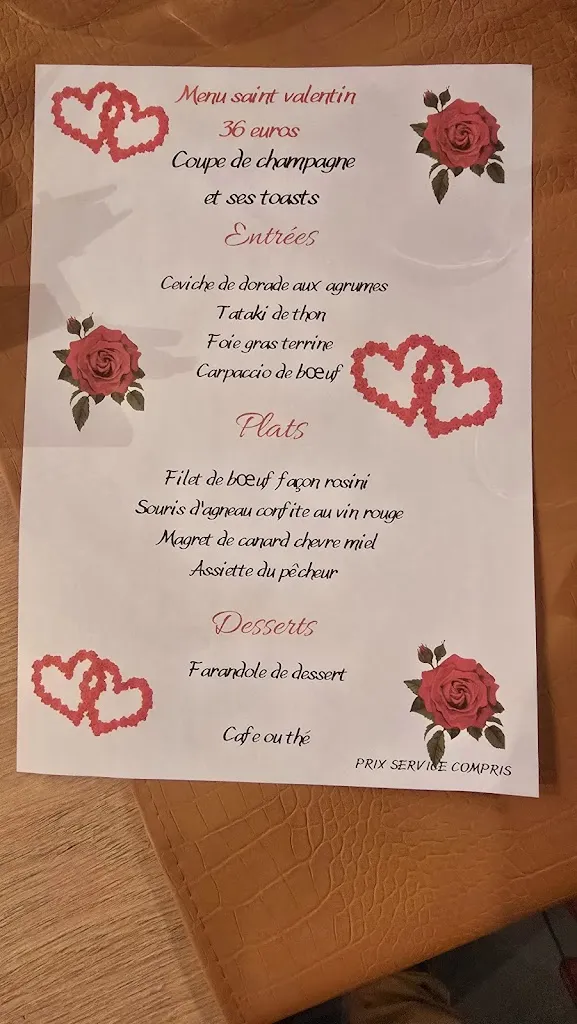 Menu saint valentin
36 euros
Coupe de champagne
et ses toasts
Entrées
Ceviche de dorade aux agrumes
Tataki de thon
Foie gras terrine
Carpaccio de bœuf
Plats
Filet de bœuf façon rosini
Souris d'agneau confite au vin rouge
Magret de canard chevre miel
Assiette du pêcheur
Desserts
Farandole de dessert
Cafe ou thé
PRIX SERVICE COMPRIS